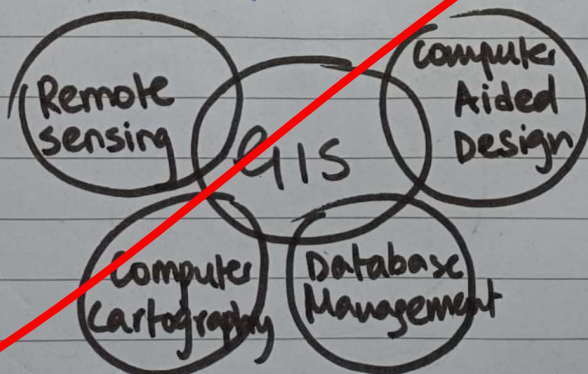 Remote
sensing
GIS
Computer
Aided
Design
Computer
Cartography
Database
Management